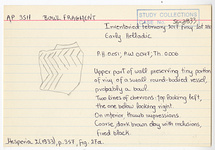 AP 3511 BOWL FRAGMENT
STUDY COLLECTIONS
Inventoried February 2017 Tray lot
Early Helladic
P.H. 0.051; P.W. 0.047; Th. 0.006
Upper part of wall preserving tiny portion
of rim, of a small round-bodied vessel,
probably a bowl.
Two lines of chevrons: top looking left,
the one below looking right.
On interior, thumb impressions
Coarse, dark brown clay with inclusions,
fired black.
Hesperia, 2 (1933), p. 357, Fig. 27a.